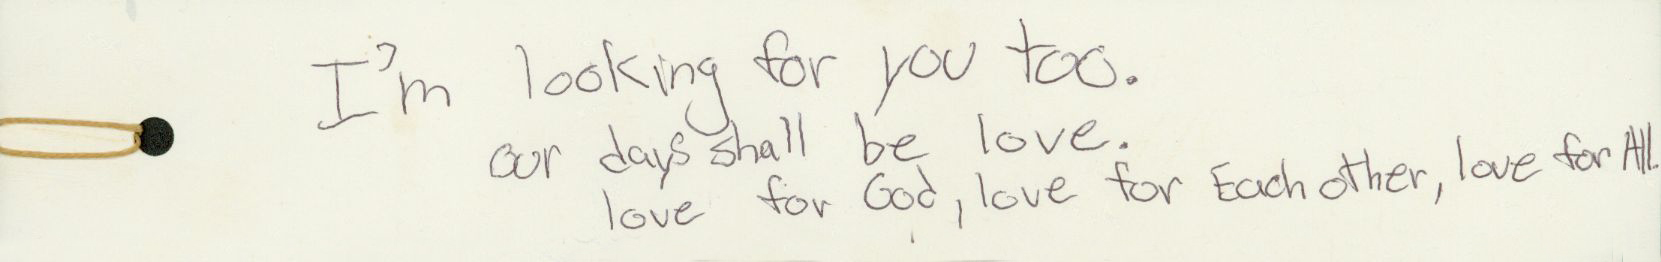 I'm looking for you too.
our days shall be love.
love for God, love for Each other, love for All.